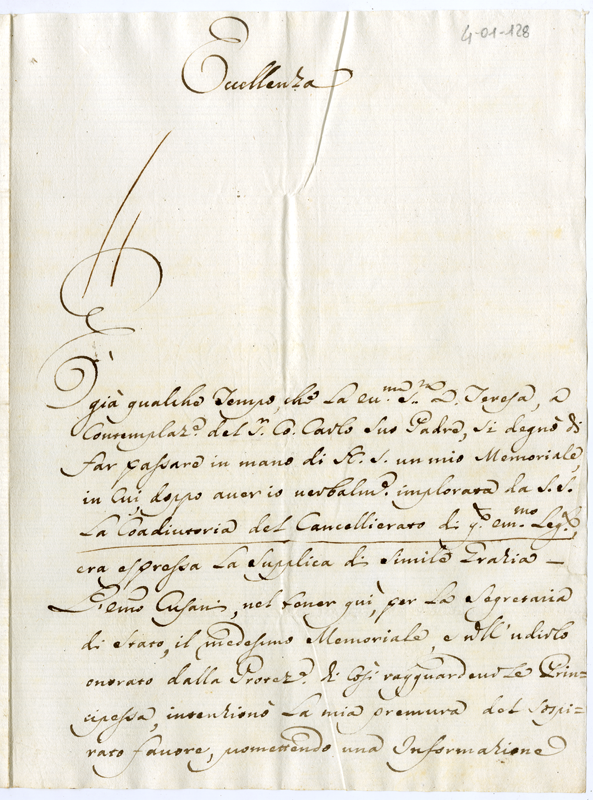 4-01-128
Eccellenza
È
già qualche Tempo, che La ecc.ma S.ra D. Teresa, a
Contemplaz.e del Sr. Co. Carlo Suo Padre, Si degnò di
far passare in mano di N. S. un mio Memoriale,
in Cui doppo aver io verbalm.e implorata da S. S.
La Coadiutoria del Cancellierato di q.a em.mo Leg.e,
era espressa La Supplica di Simile Grazia –
L'emo Cusani, nel tener qui, per La Segretaria
di Stato, il medesimo Memoriale, e nell' udirlo
onorato dalla Protez.e di Così ragguardevole Prin=
cipessa, intenzionò La mia premura del Sospi=
rato favore, promettendo una Informazione